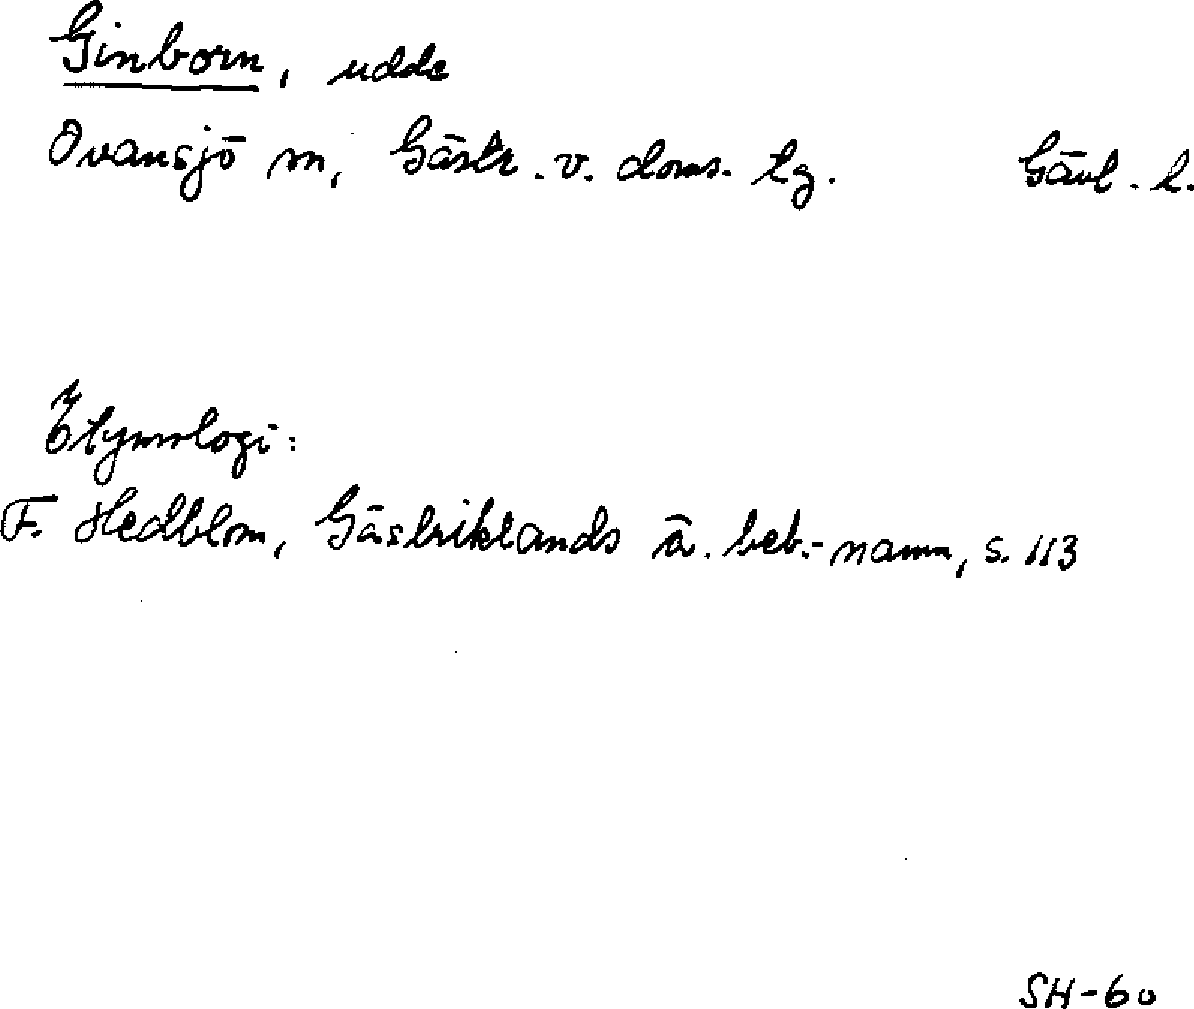 Ginborn, udde
Ovansjö sn, Gästr. v. doms. tg. Gävl. l.
Etymologi:
F. Hedblom, Gästriklands ä. beb.-namn, s. 113
SH-60